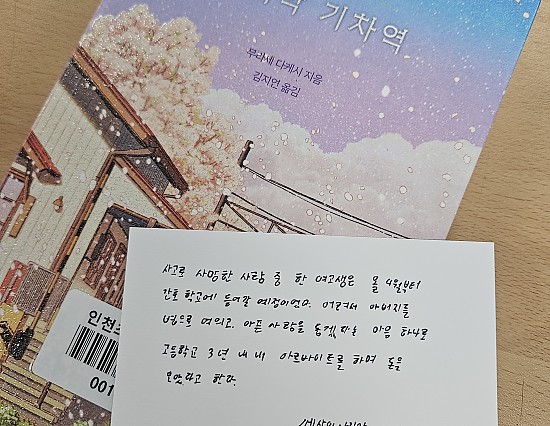 기차역
무라세 다케시 지음
김지연 옮김
인천
001
사고로 사망한 사람 중 한 여고생은 올 4월부터
간호 학교에 들어갈 예정이었다. 어려서 아버지를
병으로 여의고, 아픈 사람을 돕겠다는 마음 하나로
고등학교 3년 내내 아르바이트를 하며 돈을
모았다고 한다.